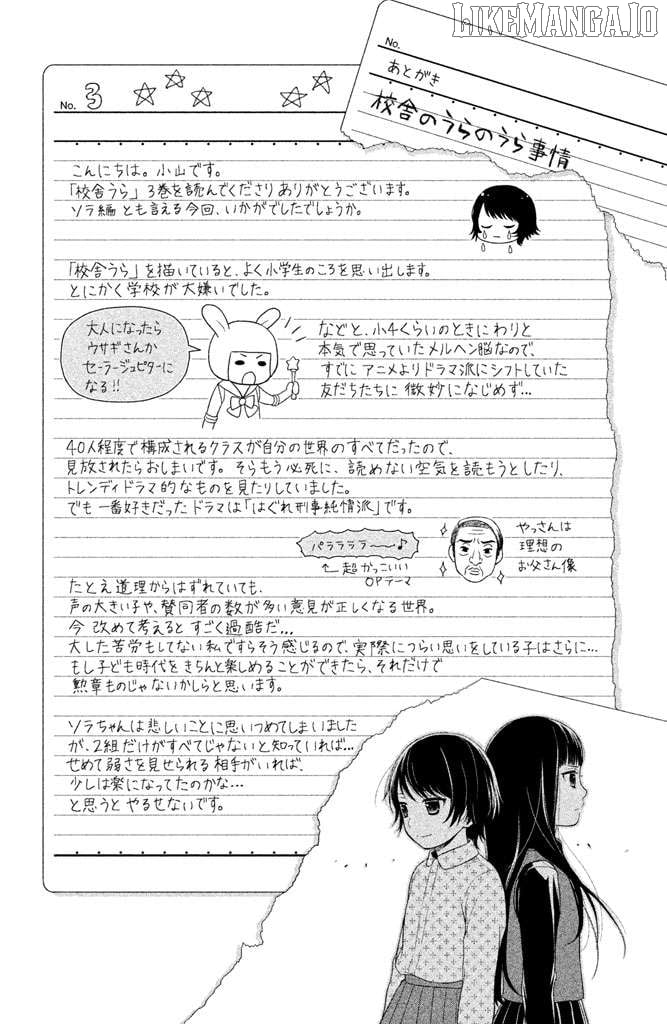 LIKEMANGA.IO
No.
あとがき
校舎のうらのうら事情
No. 3
こんにちは。小山です。
「校舎うら」3巻を読んでくださりありがとうございます。
ソラ編とも言える今回、いかがでしたでしょうか。
「校舎うら」を描いていると、よく小学生のころを思い出します。
とにかく学校が大嫌いでした。
大人になったら
ウサギさんか
セーラージュピターに
なる!!
などと、小4くらいのときにわりと
本気で思っていたメルヘン脳なので、
すでにアニメよりドラマ派にシフトしていた
友だちたちに微妙になじめず…
40人程度で構成されるクラスが自分の世界のすべてだったので、
見放されたらおしまいです。そらもう必死に、読めない空気を読もうとしたり、
トレンディドラマ的なものを見たりしていました。
でも一番好きだったドラマは「はぐれ刑事純情派」です。
パラララララ――♪
←超かっこいい
OPテーマ
やっさんは
理想の
お父さん像
たとえ道理からはずれていても、
声の大きい子や、賛同者の数が多い意見が正しくなる世界。
今改めて考えるとすごく過酷だ…
大した苦労もしてない私ですらそう感じるので、実際につらい思いをしている子はさらに…
もし子ども時代をきちんと楽しめることができたら、それだけで
勲章ものじゃないかしらと思います。
ソラちゃんは悲しいことに思いつめてしまいました
が、2組だけがすべてじゃないと知っていれば…
せめて弱さを見せられる相手がいれば、
少しは楽になってたのかな…
と思うとやるせないです。